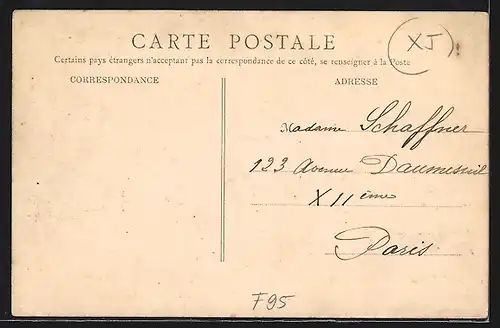 CARTE POSTALE
XJ
Certains pays étrangers n'acceptant pas la correspondance de ce côté, se renseigner à la Poste
CORRESPONDANCE
ADRESSE
Madame Schaffner
123 Avenue Daumesnil
XIIème
Paris
F95